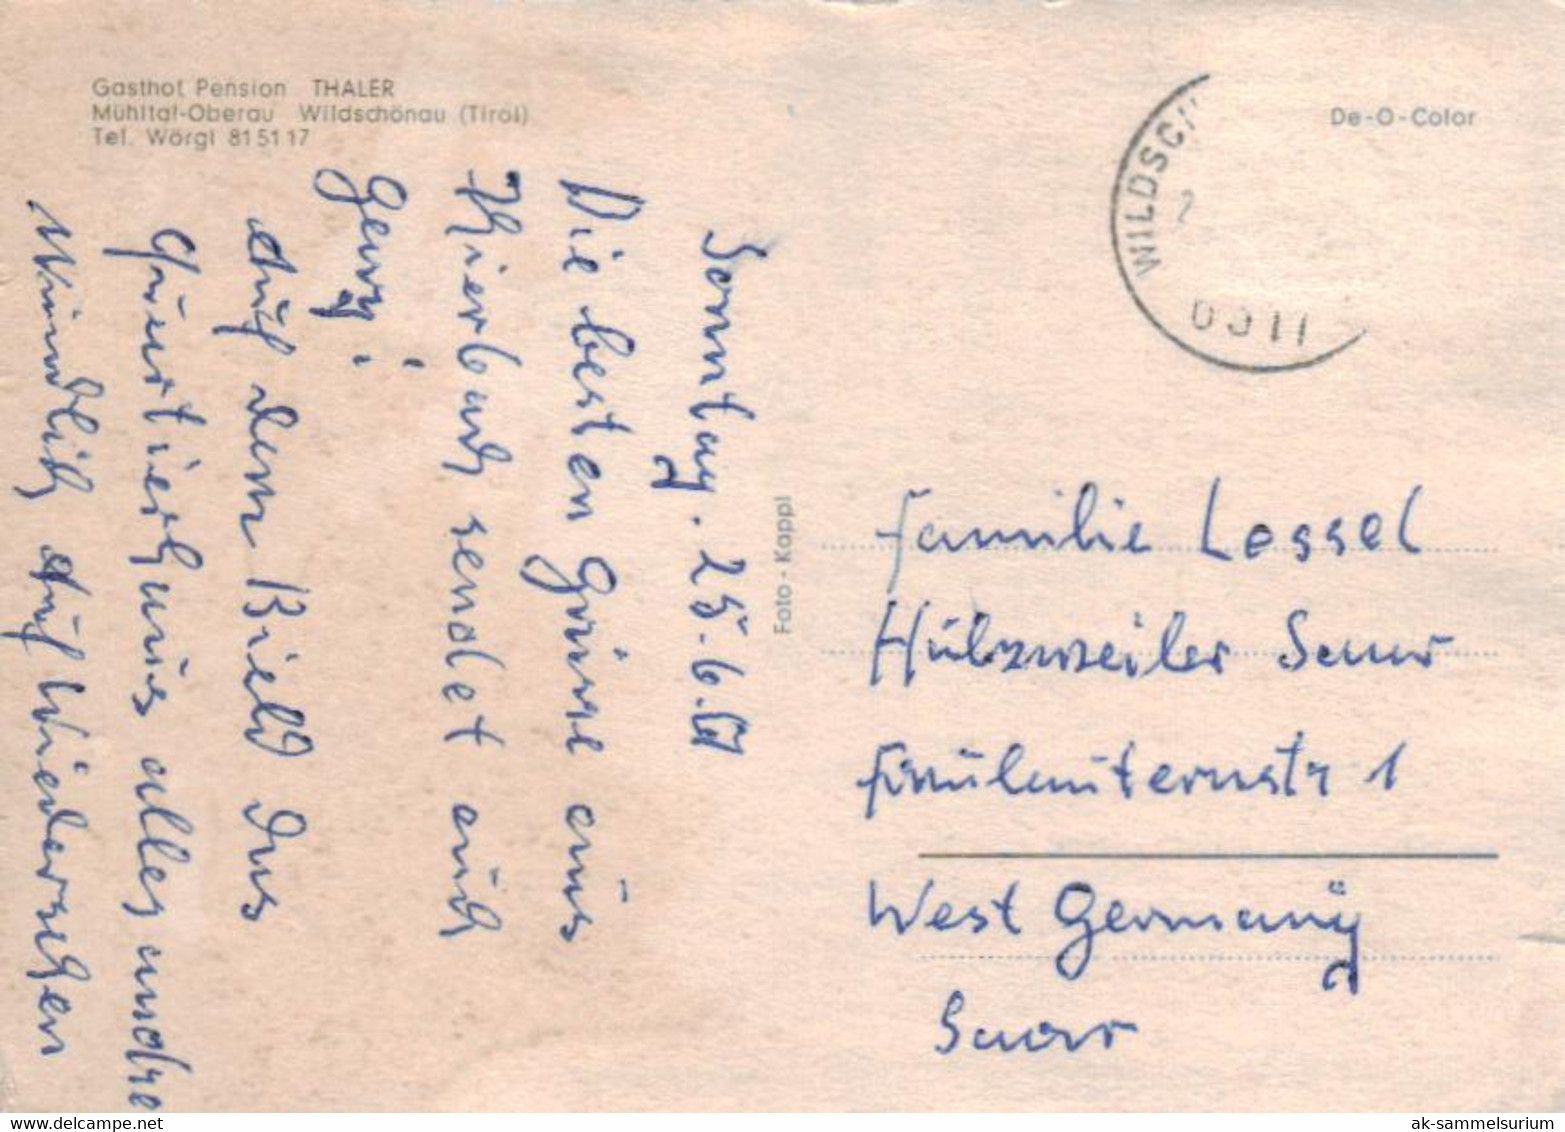 Gasthof Pension THALER
Mühltal-Oberau Wildschönau (Tirol)
Tel. Wörgl 815117
De-O-Color
WILDSCH
Foto - Kappl
Sonntag. 25.6.67
Die besten Grüsse aus
sendet euch
Georg
Auf dem Bield das
Quartierhaus alles andre
Mündlich Auf Wiedersehen
Familie Lessel
Hülzweiler Saar
Fraulauternstr 1
West Germany
Saar
ak-sammelsurium - delcampe.net